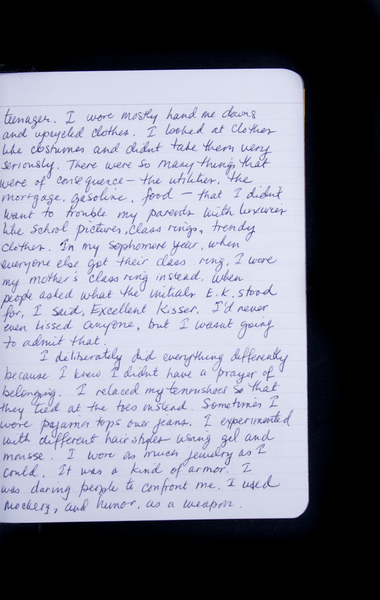 teenager. I wore mostly hand me downs
and upcycled clothes. I looked at clothes
like costumes and didnt take them very
seriously. There were so many things that
were of consequence - the utilities, the
mortgage, gasoline, food - that I didn't
want to trouble my parents with luxuries
like school pictures, class rings, trendy
clothes. In my sophomore year, when
everyone else got their class ring, I wore
my mother's class ring instead. When
people asked what the initials E.K. stood
for, I said, Excellent Kisser. I'd never
even kissed anyone, but I wasnt going
to admit that.
I deliberately did everything differently
because I knew I didnt have a prayer of
belonging. I relaced my tennis shoes so that
they tied at the toes instead. Sometimes I
wore pajama tops over jeans. I experimented
with different hairstyles using gel and
mousse. I wore as much jewelry as I
could. It was a kind of armor. I
was daring people to confront me. I used
mockery, and humor, as a weapon.